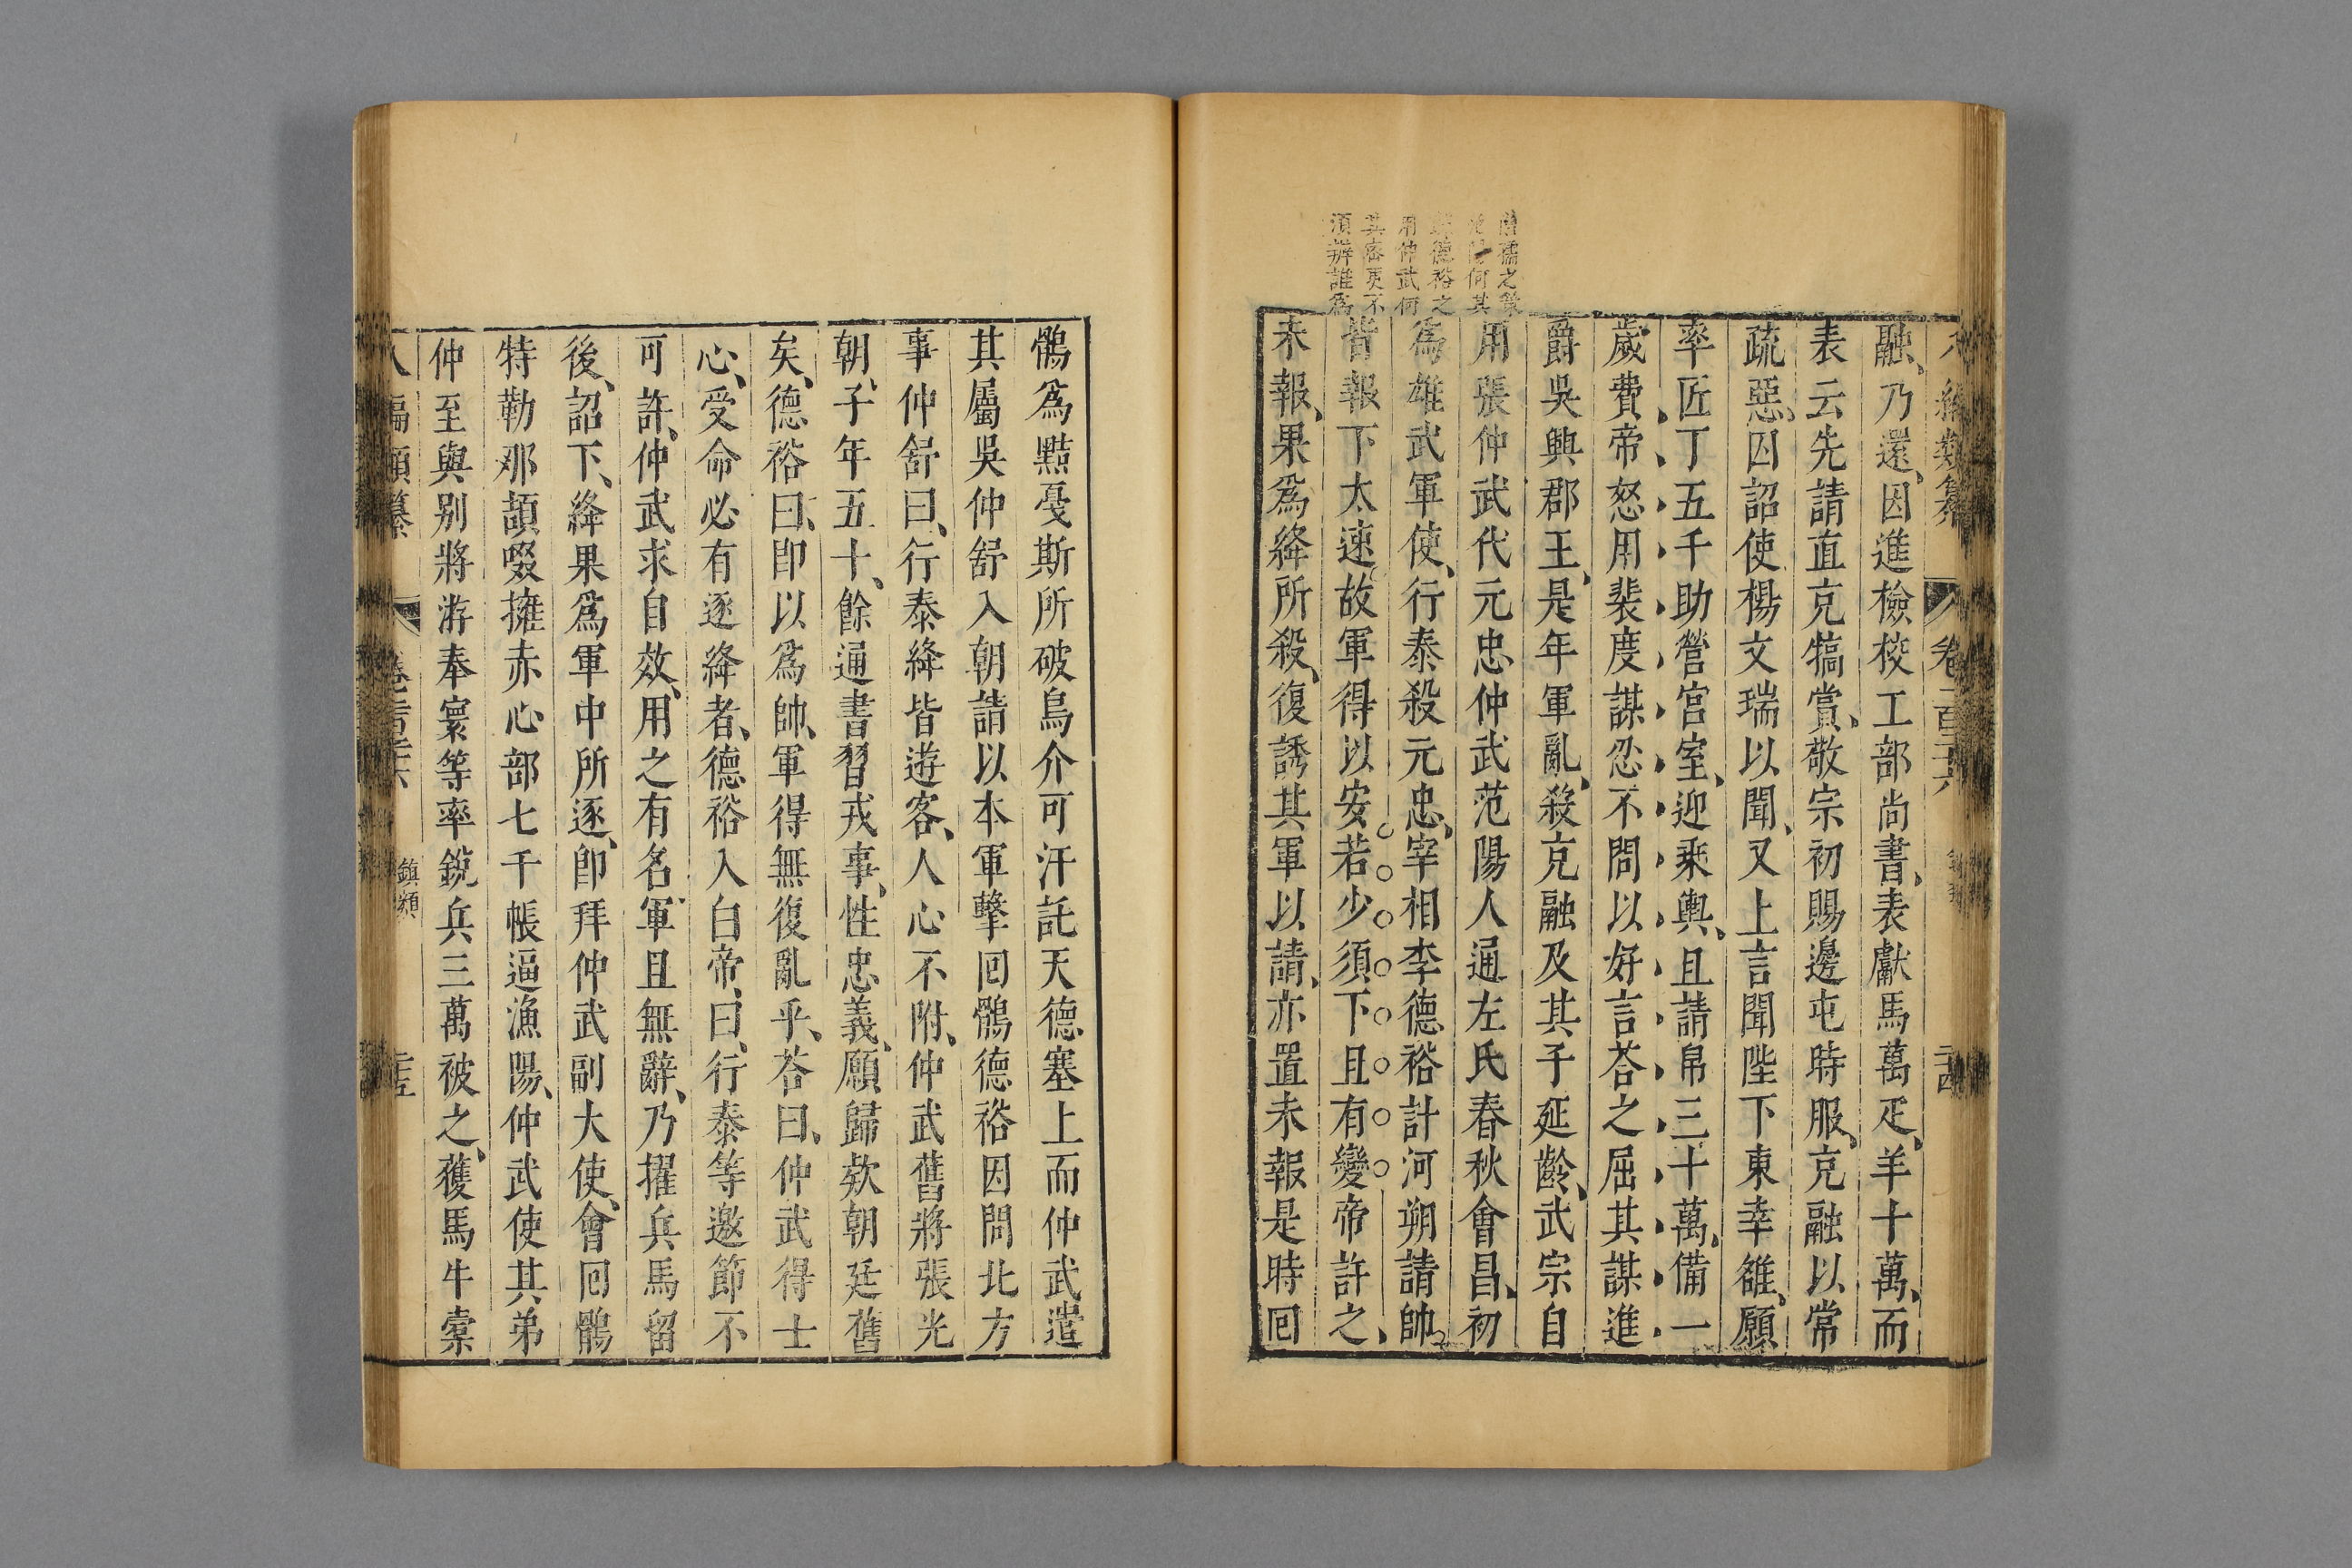 融乃還因進檢校工部尚書表獻馬萬疋羊十萬而
表云先請直克犒賞敬宗初賜邊屯時服克融以常
疏惡囚詔使楊文瑞以聞又上言聞陛下東幸雒願
率匠丁五千助營宮室迎乘輿且請帛三十萬備一
歲費帝怒用裴度謀忍不問以好言荅之屈其謀進
爵吳興郡王是年軍亂殺克融及其子延齡武宗自
用張仲武代元忠仲武范陽人通左氏春秋會昌初
爲雄武軍使行泰殺元忠宰相李德裕計河朔請帥
皆報下太速故軍得以安若少須下且有變帝許之
未報果爲絳所殺復誘其軍以請亦置未報是時回
儒之
何其
德裕之
用仲武何
其審更不
須辨誰爲
鶻爲黠戛斯所破烏介可汗託天德塞上而仲武遣
其屬吳仲舒入朝請以本軍擊回鶻德裕因問北方
事仲舒曰行泰絳皆遊客人心不附仲武舊將張光
朝子年五十餘通書習戎事性忠義願歸欵朝廷舊
矣德裕曰卽以爲帥軍得無復亂乎荅曰仲武得士
心受命必有逐絳者德裕入白帝曰行泰等邀節不
可許仲武求自效用之有名軍且無辭乃擢兵馬留
後詔下絳果爲軍中所逐卽拜仲武副大使會回鶻
特勒那頡啜擁赤心部七千帳逼漁陽仲武使其弟
仲至與别將游奉寰等率銳兵三萬被之獲馬牛橐
鎮類